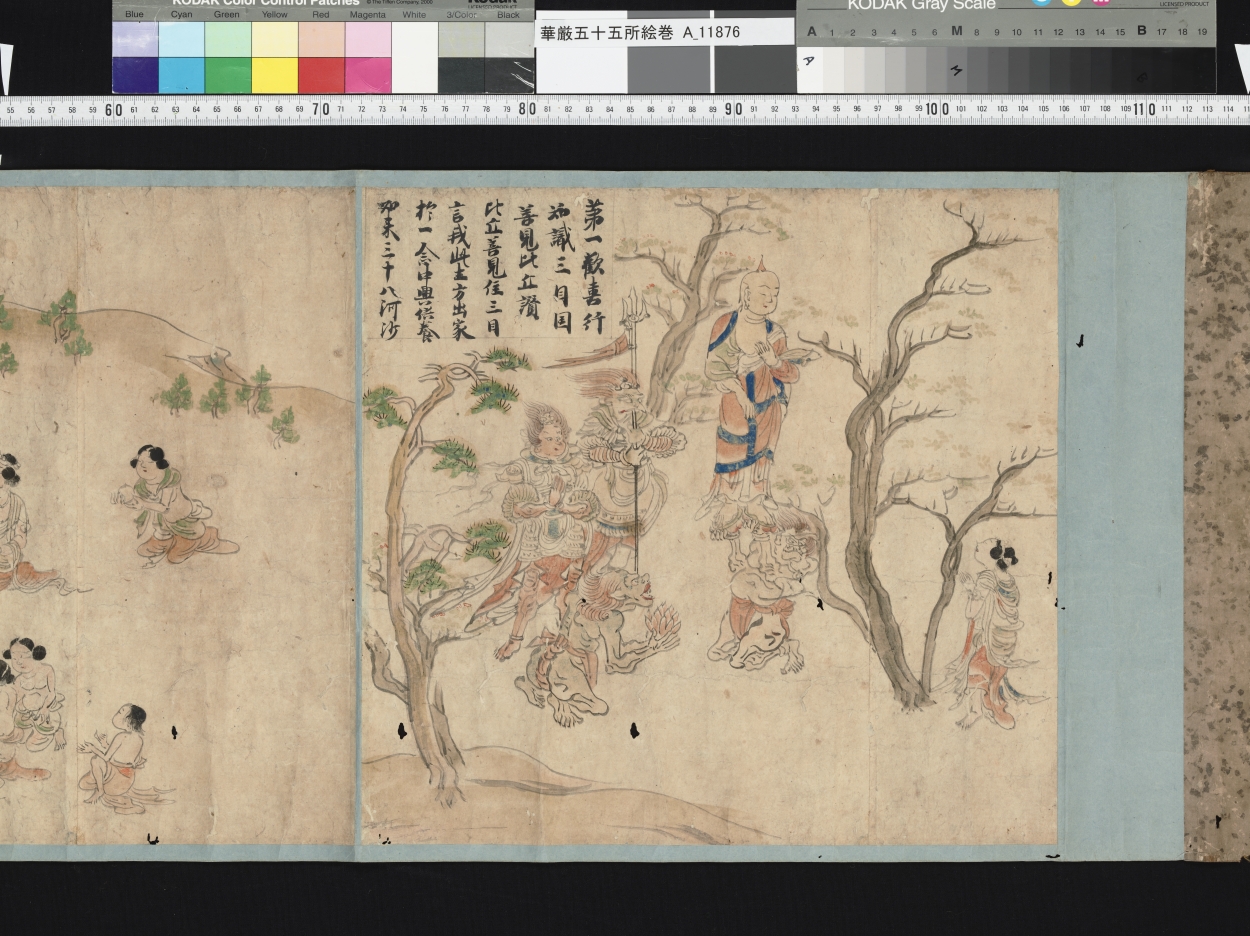 KODAK Color Control Patches
Blue Cyan Green Yellow Red Magenta White 3/Color Black
華厳五十五所絵巻 A_11876
KODAK Gray Scale
A 1 2 3 4 5 6 M 8 9 10 11 12 13 14 15 B 17 18 19
55 56 57 58 59 60 61 62 63 64 65 66 67 68 69 70 71 72 73 74 75 76 77 78 79 80 81 82 83 84 85 86 87 88 89 90 91 92 93 94 95 96 97 98 99 100 101 102 103 104 105 106 107 108 109 110 111 112 113 114
第一歓喜行
知識三目国
善見比丘讃
比丘善見住三目
言我此生方出家
於一念中興供養
如来三十八河沙